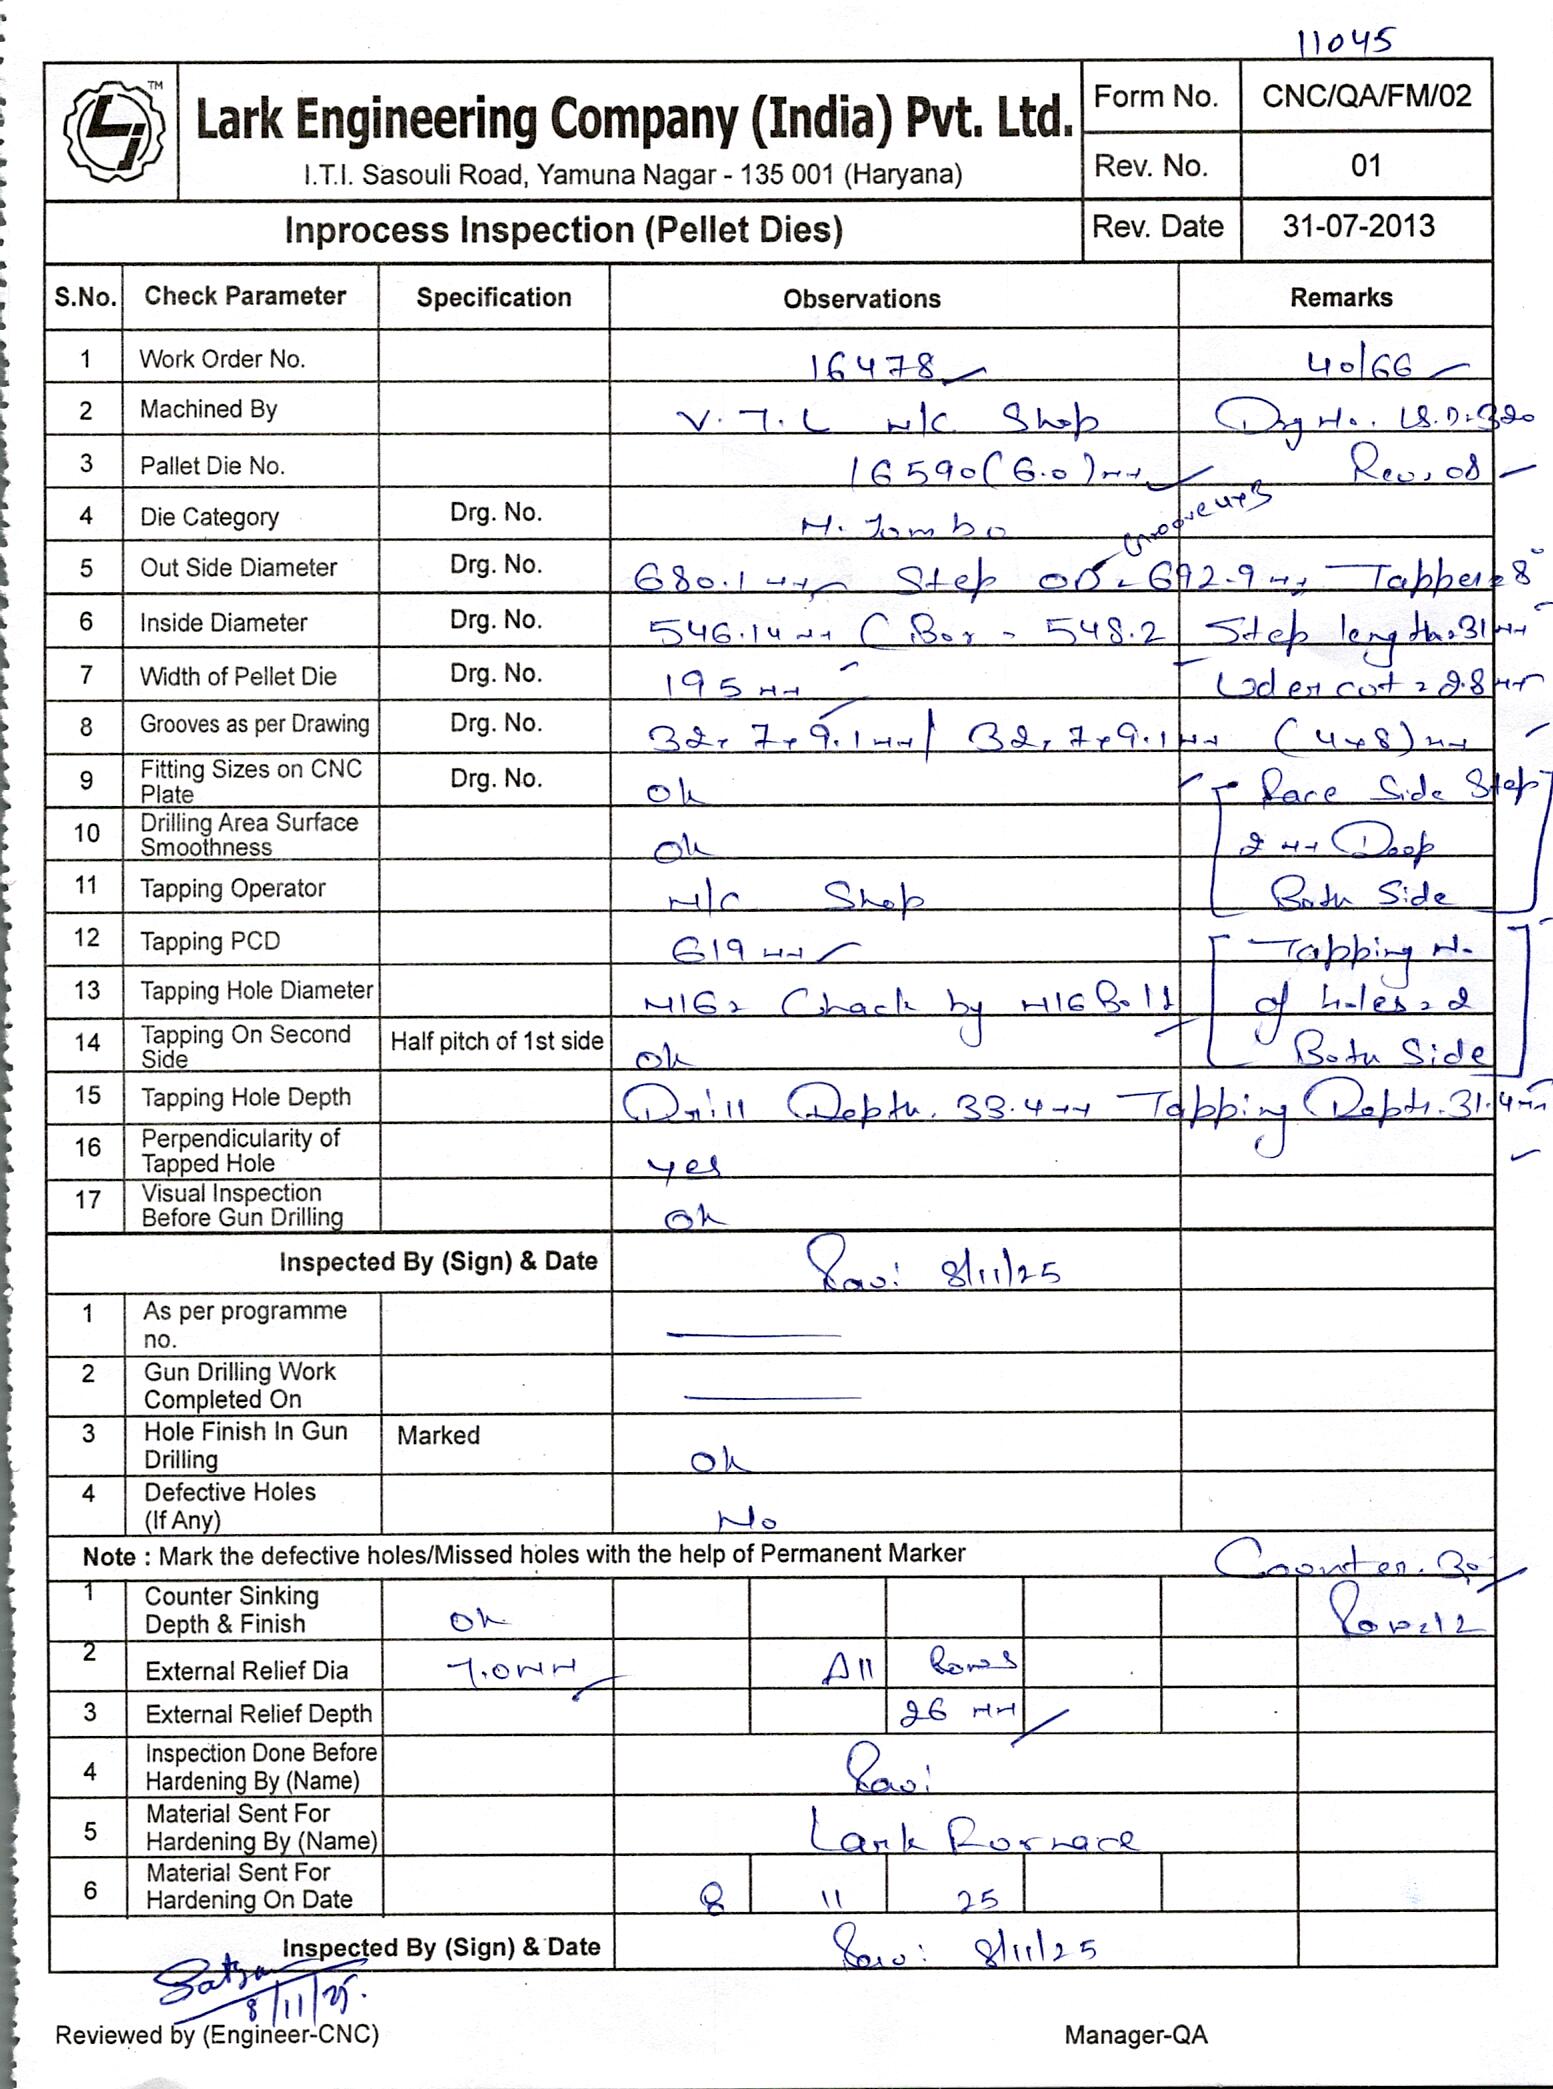 11045
TM
Lark Engineering Company (India) Pvt. Ltd.
I.T.I. Sasouli Road, Yamuna Nagar - 135 001 (Haryana)
Form No. CNC/QA/FM/02
Rev. No. 01
Inprocess Inspection (Pellet Dies) Rev. Date 31-07-2013
S.No. Check Parameter Specification Observations Remarks
1 Work Order No. 16478 40/66
2 Machined By V.T.L M/C Shop Drg No. LS.D.320
3 Pallet Die No. 16590 (6.0) mm Rev. 08
4 Die Category Drg. No. H. Jombo Groove
5 Out Side Diameter Drg. No. 680.1 mm Step OD - 692.9 mm Tapper = 8°
6 Inside Diameter Drg. No. 546.14 mm C Bor - 548.2 Step length = 31 mm
7 Width of Pellet Die Drg. No. 195 mm Under cut = 2.8 mm
8 Grooves as per Drawing Drg. No. 32 x 7 x 9.1 mm / 32 x 7 x 9.1 mm (4x8) mm
9 Fitting Sizes on CNC Plate Drg. No. Ok Face Side Step
10 Drilling Area Surface Smoothness Ok 2 mm Deep
11 Tapping Operator M/C Shop Both Side
12 Tapping PCD 619 mm Tapping N.
13 Tapping Hole Diameter M16 = Chack by M16 Bolt of holes = 2
14 Tapping On Second Side Half pitch of 1st side Ok Both Side
15 Tapping Hole Depth Drill Depth. 33.4 mm Tapping Depth. 31.4 mm
16 Perpendicularity of Tapped Hole yes
17 Visual Inspection Before Gun Drilling Ok
Inspected By (Sign) & Date Ravi 8/11/25
1 As per programme no.
2 Gun Drilling Work Completed On
3 Hole Finish In Gun Drilling Marked Ok
4 Defective Holes (If Any) No
Note : Mark the defective holes/Missed holes with the help of Permanent Marker Counter. 30
1 Counter Sinking Depth & Finish Ok
2 External Relief Dia 7.0 mm All Rows
3 External Relief Depth 26 mm
4 Inspection Done Before Hardening By (Name) Ravi
5 Material Sent For Hardening By (Name) Lark Furnace
6 Material Sent For Hardening On Date 8 11 25
Inspected By (Sign) & Date Ravi 8/11/25
8/11/25.
Reviewed by (Engineer-CNC) Manager-QA